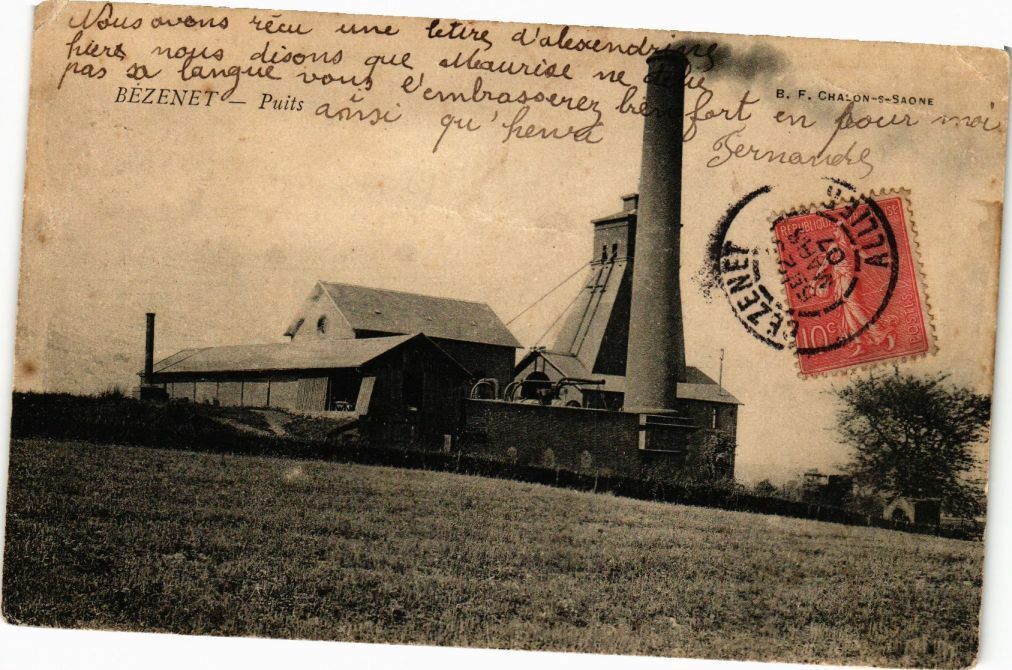 Nous avons récu une letire d'alexendrine
hière nous disons que Maurise ne
pas sa langue vous l'embrasserez bien fort en pour moi
BÉZENET — Puits
B. F. CHALON-S-SAONE
ainsi qu'henri
Fernande
BÉZENET
ALLIER
MARS
07
RÉPUBLIQUE
10c
POSTES